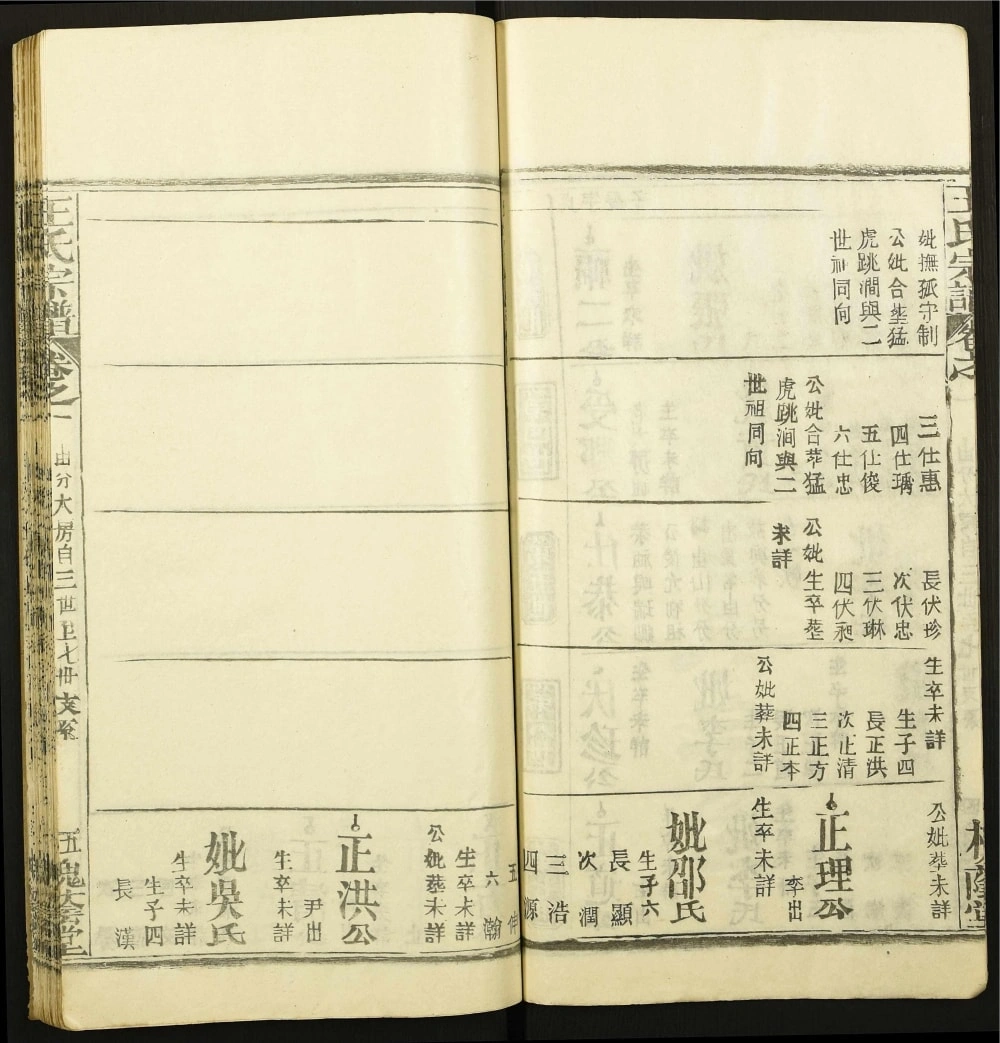 王氏宗譜
卷之
妣撫孤守制
公妣合塟猛
虎跳澗與二
世祖同向
三仕惠
四仕瑀
五仕俊
六仕忠
公妣合葬猛
虎跳澗與二
世祖同向
長伏珍
次伏忠
三伏琳
四伏永
公妣生卒塟
未詳
生卒未詳
生子四
長正洪
次正清
三正方
四正本
公妣葬未詳
公妣塟未詳
正理公
李出
生卒未詳
妣邵氏
生子六
長顯
次潤
三浩
四源
五
六瀚
生卒未詳
公妣葬未詳
正洪公
尹出
生卒未詳
妣吳氏
生卒未詳
生子四
長漢
王氏宗譜
卷之一
由分大房自三世且七世支系
五槐堂